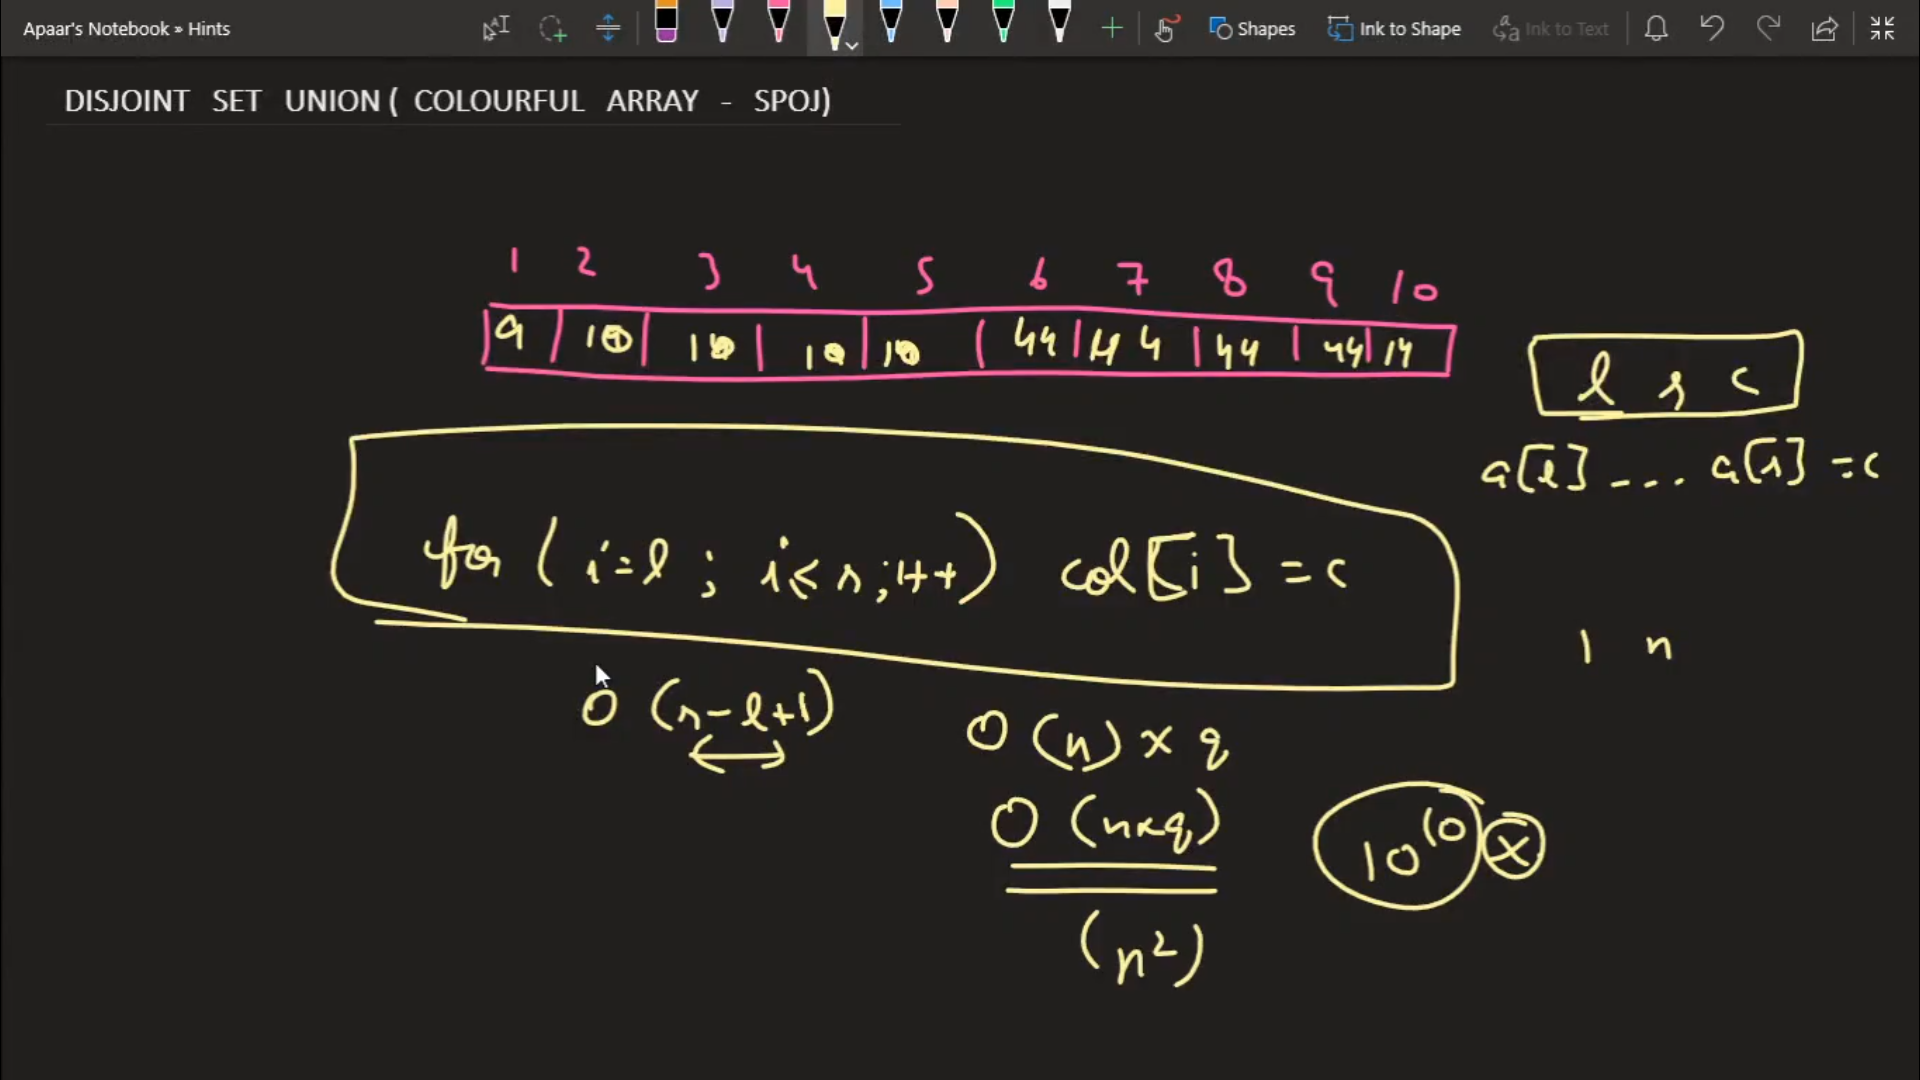 Apaar's Notebook » Hints
Shapes
Ink to Shape
Ink to Text
DISJOINT SET UNION ( COLOURFUL ARRAY - SPOJ)
1 2 3 4 5 6 7 8 9 10
9 10 10 10 10 44 44 44 44 14
l r c
a[l] --- a[r] = c
for ( i=l ; i≤r ; i++) col[i] = c
1 n
O (r-l+1)
O (n) x q
O (nxq)
10^10 x
(n²)